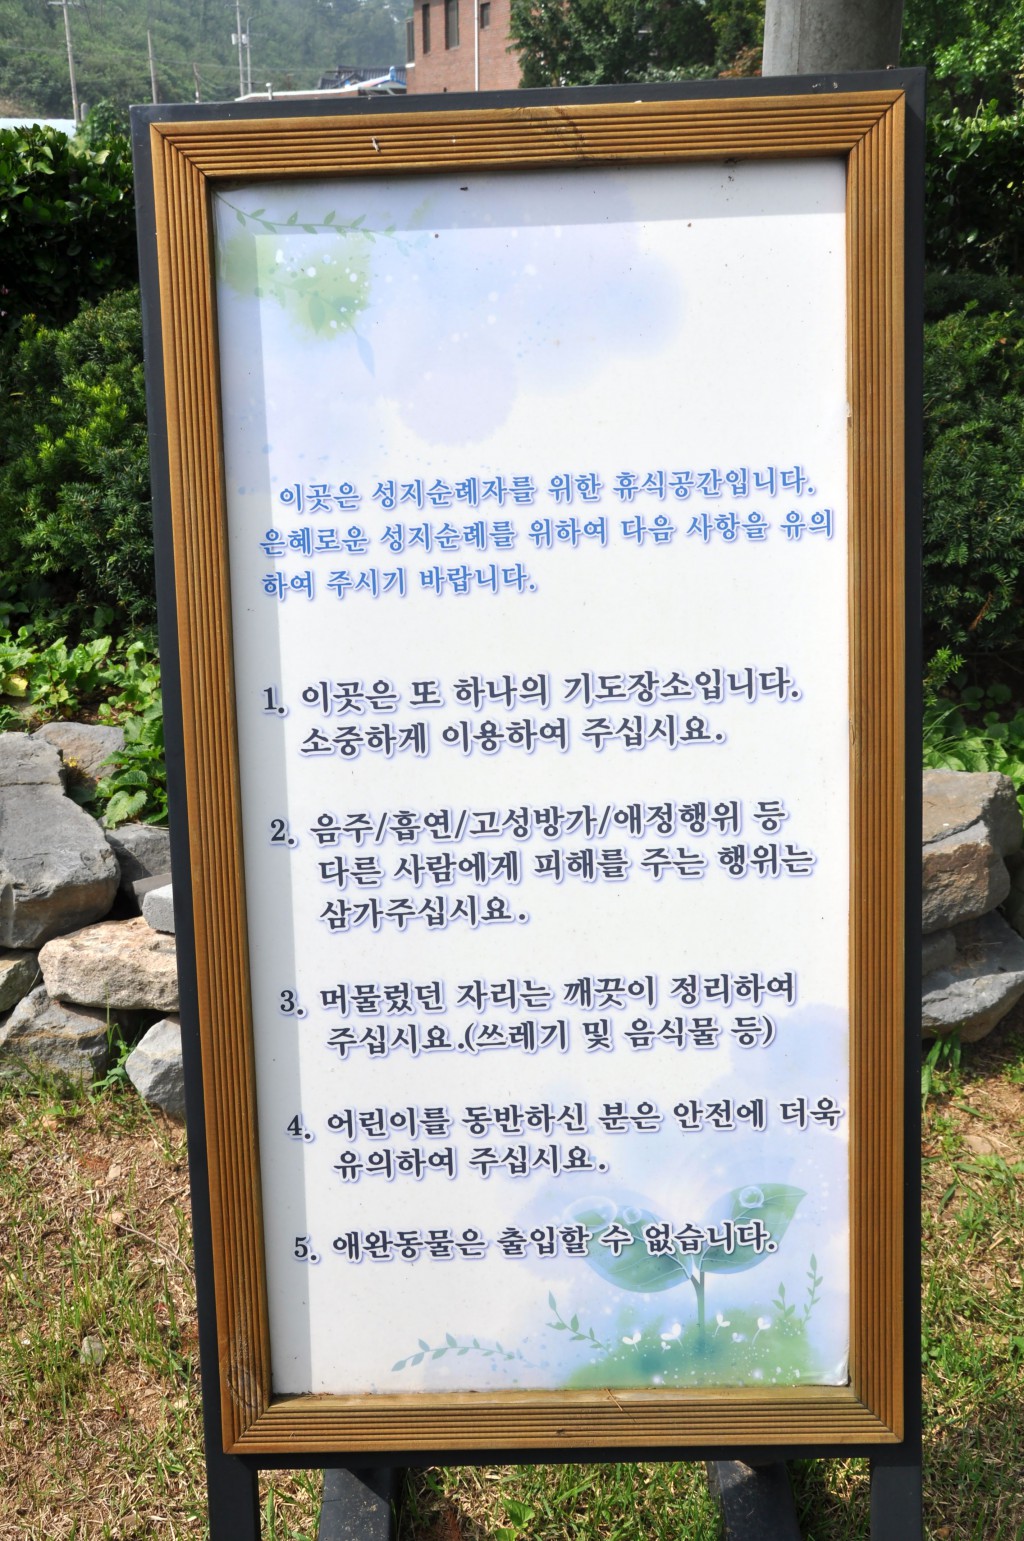 이곳은 성지순례자를 위한 휴식공간입니다.
은혜로운 성지순례를 위하여 다음 사항을 유의
하여 주시기 바랍니다.
1. 이곳은 또 하나의 기도장소입니다.
소중하게 이용하여 주십시요.
2. 음주/흡연/고성방가/애정행위 등
다른 사람에게 피해를 주는 행위는
삼가주십시요.
3. 머물렀던 자리는 깨끗이 정리하여
주십시요.(쓰레기 및 음식물 등)
4. 어린이를 동반하신 분은 안전에 더욱
유의하여 주십시요.
5. 애완동물은 출입할 수 없습니다.